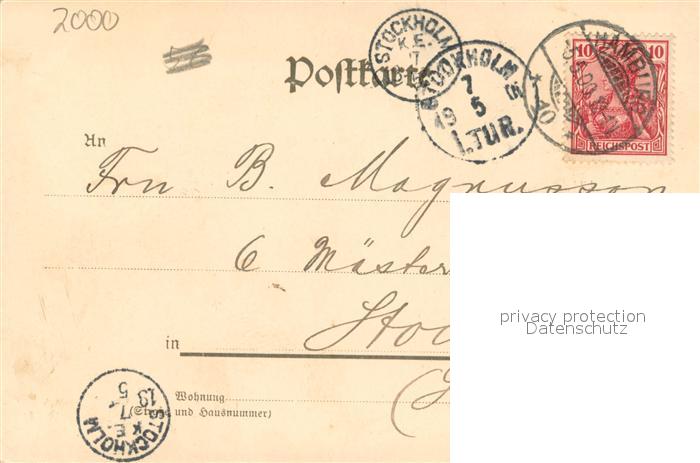 2000
STOCKHOLM
K.E.
7
STOCKHOLM 5
7
19 5
1.TUR.
HAMBURG
10 10
REICHSPOST
Postkarte
An
Fru B. Magnusson
6 Mäster
in Stoc
Wohnung
(Straße und Hausnummer)
STOCKHOLM
K.E.
privacy protection
Datenschutz